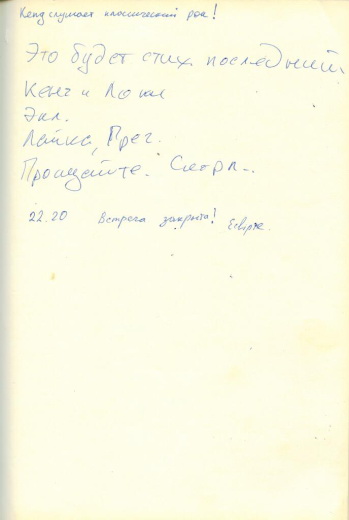 Кенд слушает классический рок!
Это будет стих последний.
Кенг и
Экл.
Лайка, Грег.
Прощайте.
22.20 Встреча закрыта!